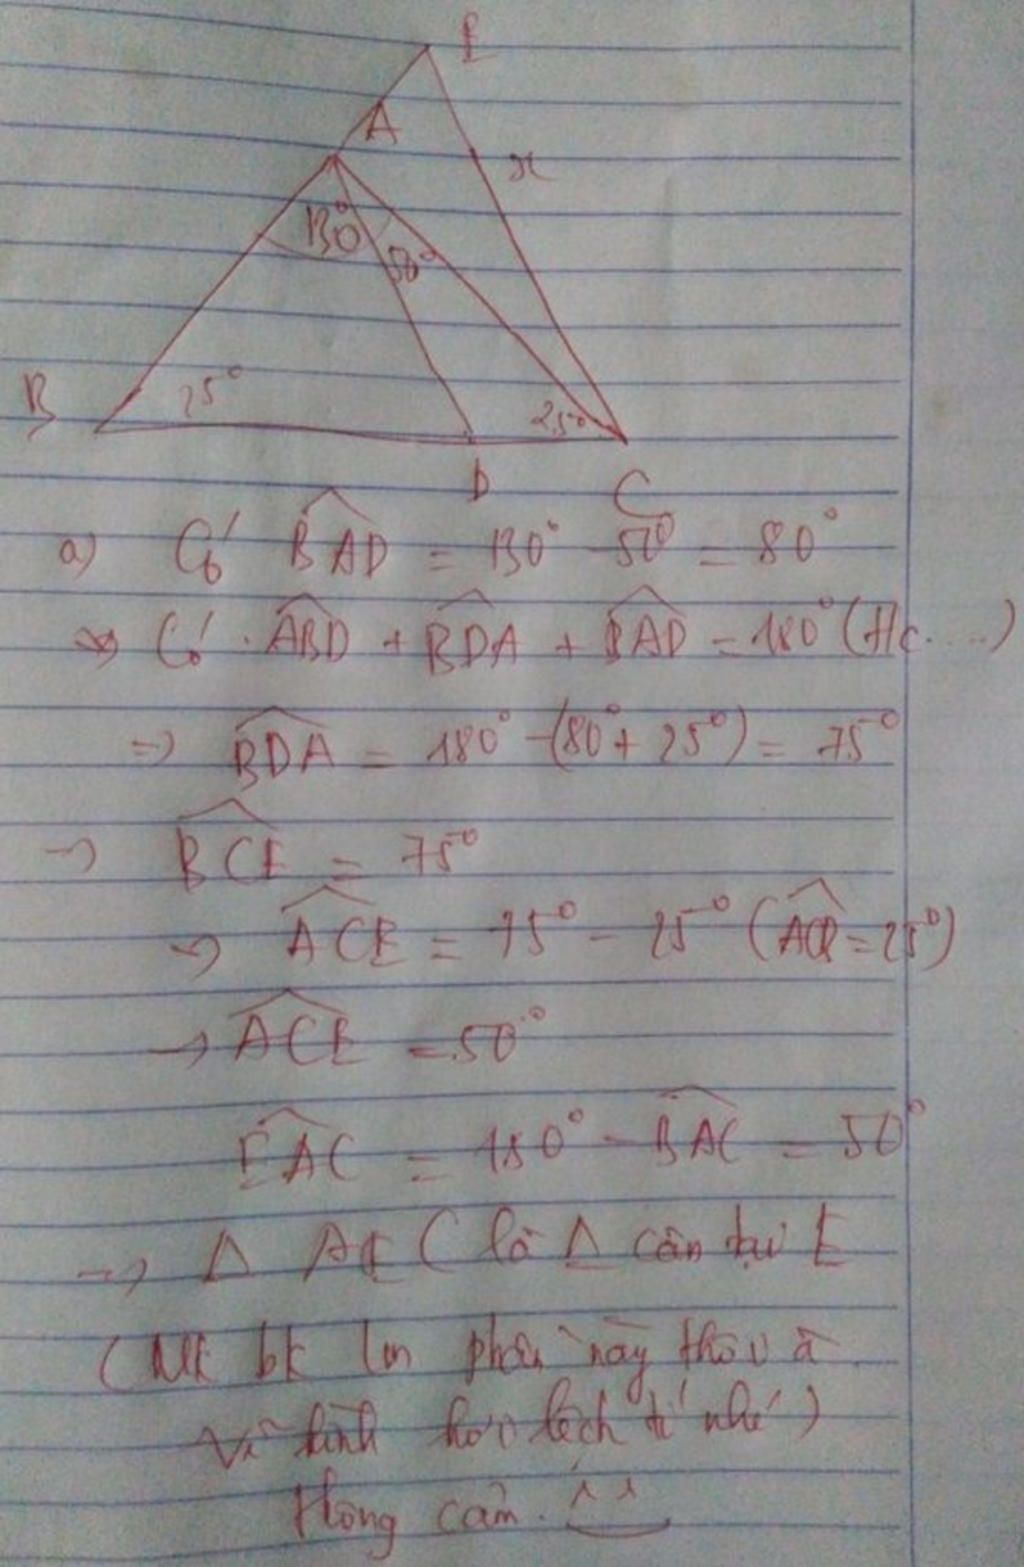 E
A
x
130°
50°
B
25°
25°
D
C
a) Có BAD = 130° - 50° = 80°
=> Có. ABD + BDA + BAD = 180° (t/c ...)
=> BDA = 180° - (80° + 25°) = 75°
-> BCE = 75°
=> ACE = 75° - 25° (ACB = 25°)
-> ACE = 50°
EAC = 180° - BAC = 50°
-> Δ AEC là Δ cân tại E
(Mk bk lm phần này thôi à
vẽ hình hơi lệch tí nhé)
thông cảm. ^^